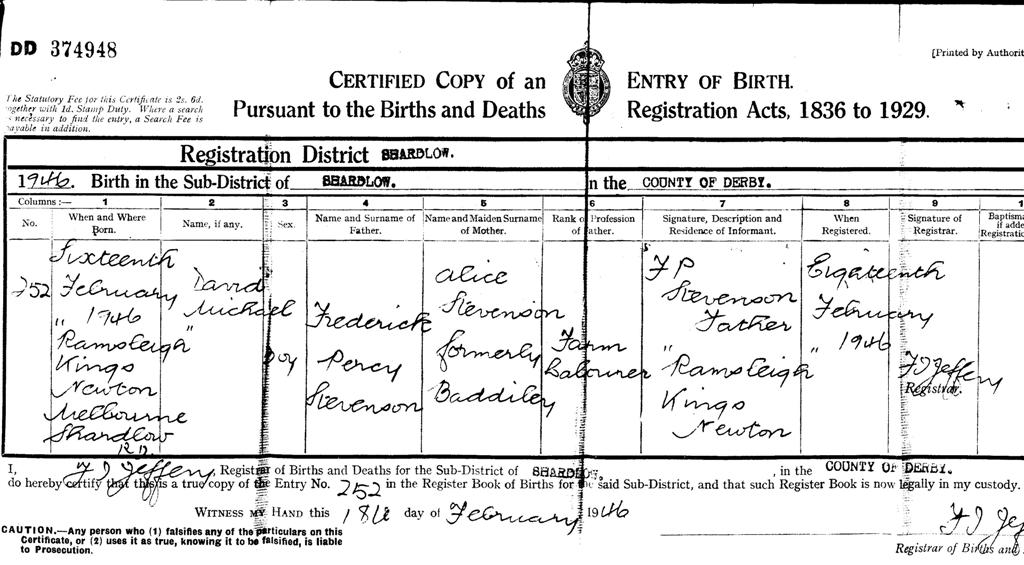 DD 374948
[Printed by Authorit
The Statutory Fee for this Certificate is 2s. 6d.
together with 1d. Stamp Duty. Where a search
is necessary to find the entry, a Search Fee is
payable in addition.
CERTIFIED COPY of an ENTRY OF BIRTH.
Pursuant to the Births and Deaths Registration Acts, 1836 to 1929.
Registration District SHARDLOW.
1946. Birth in the Sub-District of SHARDLOW. in the COUNTY OF DERBY.
Columns:— 1 2 3 4 5 6 7 8 9 1
No. When and Where Born. Name, if any. Sex. Name and Surname of Father. Name and Maiden Surname of Mother. Rank or Profession of Father. Signature, Description and Residence of Informant. When Registered. Signature of Registrar. Baptisma if adde Registratio
252
Sixteenth
February
" 1946
Ramsleigh
Kings
Newton
Melbourne
Shardlow
R.D.
David
Michael
"
Boy
Frederick
Percy
Stevenson
Alice
Stevenson
formerly
Baddiley
Farm
Labourer
F P
Stevenson
Father
"
Ramsleigh
Kings
Newton
Eighteenth
February
" 1946
F J Jeffery
Registrar.
I, F J Jeffery, Registrar of Births and Deaths for the Sub-District of SHARDLOW, in the COUNTY OF DERBY.
do hereby certify that this is a true copy of the Entry No. 252 in the Register Book of Births for the said Sub-District, and that such Register Book is now legally in my custody.
WITNESS MY HAND this 18th day of February 1946
CAUTION.—Any person who (1) falsifies any of the particulars on this
Certificate, or (2) uses it as true, knowing it to be falsified, is liable
to Prosecution.
F J Jef
Registrar of Births and